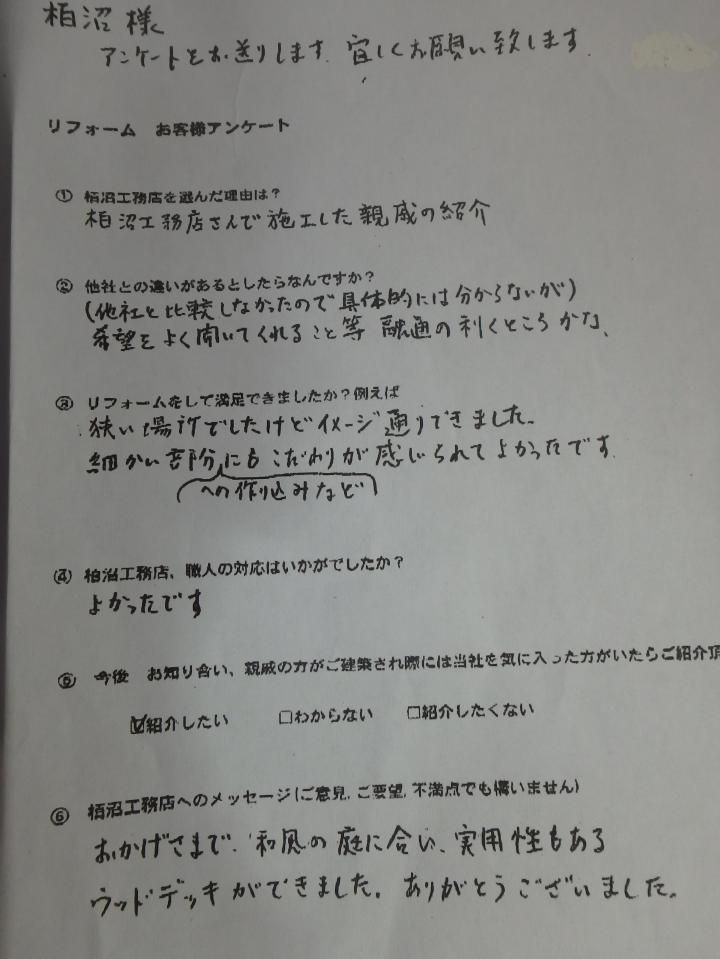 柏沼様
アンケートをお送りします。宜しくお願い致します。
リフォーム お客様アンケート
① 栢沼工務店を選んだ理由は？
柏沼工務店さんで施工した親戚の紹介
② 他社との違いがあるとしたらなんですか？
(他社と比較しなかったので具体的には分からないが)
希望をよく聞いてくれること等 融通の利くところかな、
③ リフォームをして満足できましたか？例えば
狭い場所でしたけどイメージ通りできました。
細かい部分にもこだわりが感じられてよかったです
への作り込みなど
④ 栢沼工務店、職人の対応はいかがでしたか？
よかったです
⑤ 今後 お知り合い、親戚の方がご建築され際には当社を気に入った方がいたらご紹介頂
☑紹介したい □わからない □紹介したくない
⑥ 栢沼工務店へのメッセージ(ご意見,ご要望,不満点でも構いません)
おかげさまで、和風の庭に合い、実用性もある
ウッドデッキができました。ありがとうございました。